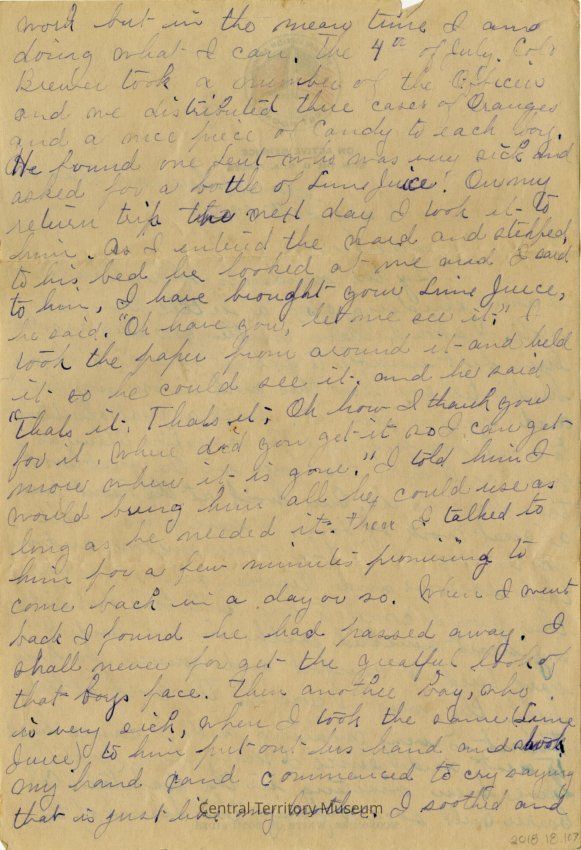 work but in the mean time I am
doing what I can. The 4th of July. Col.
Brewer took a number of the Officers
and we distributed three cases of Oranges
and a nice piece of Candy to each boy.
He found one Leut- who was very sick and
asked for a bottle of Lime Juice! On my
return trip the next day I took it to
him. As I entered the ward and stepped
to his bed he looked at me and I said
to him, I have brought your Lime Juice,
he said. "Oh have you, let me see it." I
took the paper from around it and held
it so he could see it. and he said
"Thats it, Thats it; Oh how I thank you
for it. Where did you get it so I can get
more when it is gone." I told him I
would bring him all he could use as
long as he needed it. Then I talked to
him for a few minutes promising to
come back in a day or so. When I went
back I found he had passed away. I
shall never for get the greatful look of
that boys face. Then another boy, who
is very sick, when I took the same (Lime
Juice) to him put out his hand and shook
my hand and commenced to cry saying
that is just like my brother. I soothed and
Central Territory Museum
2018.18.107